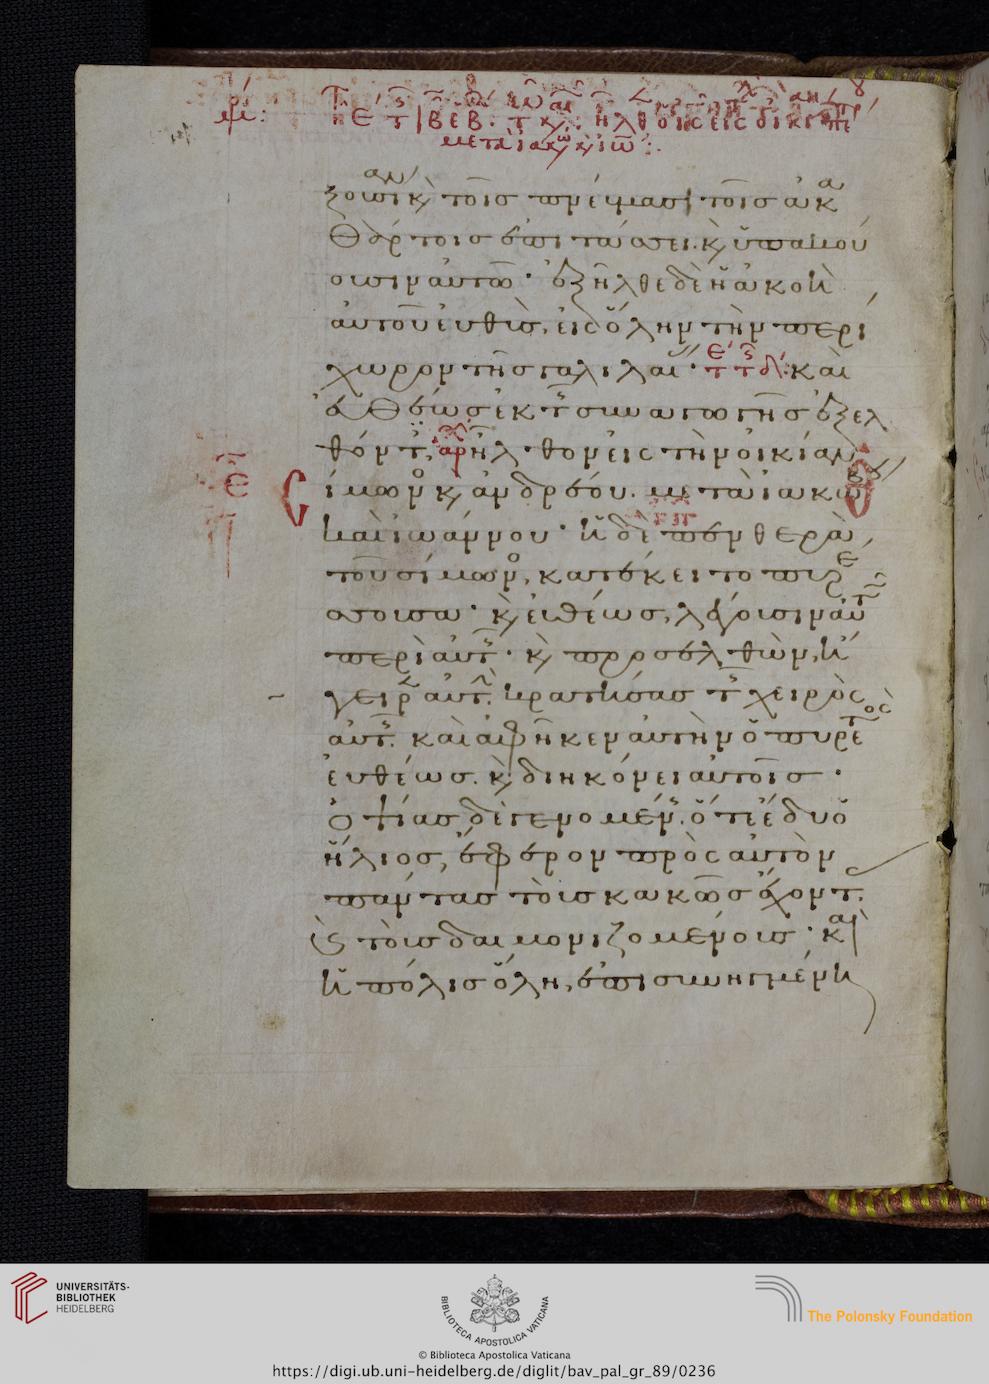 μετὰ ἰακώβου κ ἰω
ξουσίαν κ τοῖς πνεύμασι τοῖς ἀκα
θάρτοις ἐπιτάσσει. κ ὑπακού
ουσιν αὐτῶ· ἐξῆλθε δὲ ἡ ἀκοὴ
αὐτοῦ εὐθὺς, εἰς ὅλην τὴν περί
χωρον τῆς γαλιλαίας· καὶ
εὐθέως ἐκ τῆς συναγωγῆς ἐξελ
θόντες, ἦλθον εἰς τὴν οἰκίαν
σίμωνος κ ἀνδρέου. μετὰ ἰακώβου
καὶ ἰωάννου· ἡ δὲ πενθερὰ
τοῦ σίμωνος, κατέκειτο πυρέ
σσουσα· κ εὐθέως, λέγουσιν αὐτῶ
περὶ αὐτῆς· κ προσελθὼν, ἤ
γειρεν αὐτὴν κρατήσας τῆς χειρὸς
αὐτῆς. καὶ ἀφῆκεν αὐτὴν ὁ πυρετὸς
εὐθέως. κ διηκόνει αὐτοῖς·
ὀψίας δὲ γενομένης. ὅτε ἔδυ ὁ
ἥλιος, ἔφερον πρὸς αὐτὸν
πάντας τοὺς κακῶς ἔχοντας.
κ τοὺς δαιμονιζομένους· καὶ
ἡ πόλις ὅλη, ἐπισυνηγμένη
UNIVERSITÄTS-
BIBLIOTHEK
HEIDELBERG
BIBLIOTECA APOSTOLICA VATICANA
The Polonsky Foundation
© Biblioteca Apostolica Vaticana
https://digi.ub.uni-heidelberg.de/diglit/bav_pal_gr_89/0236